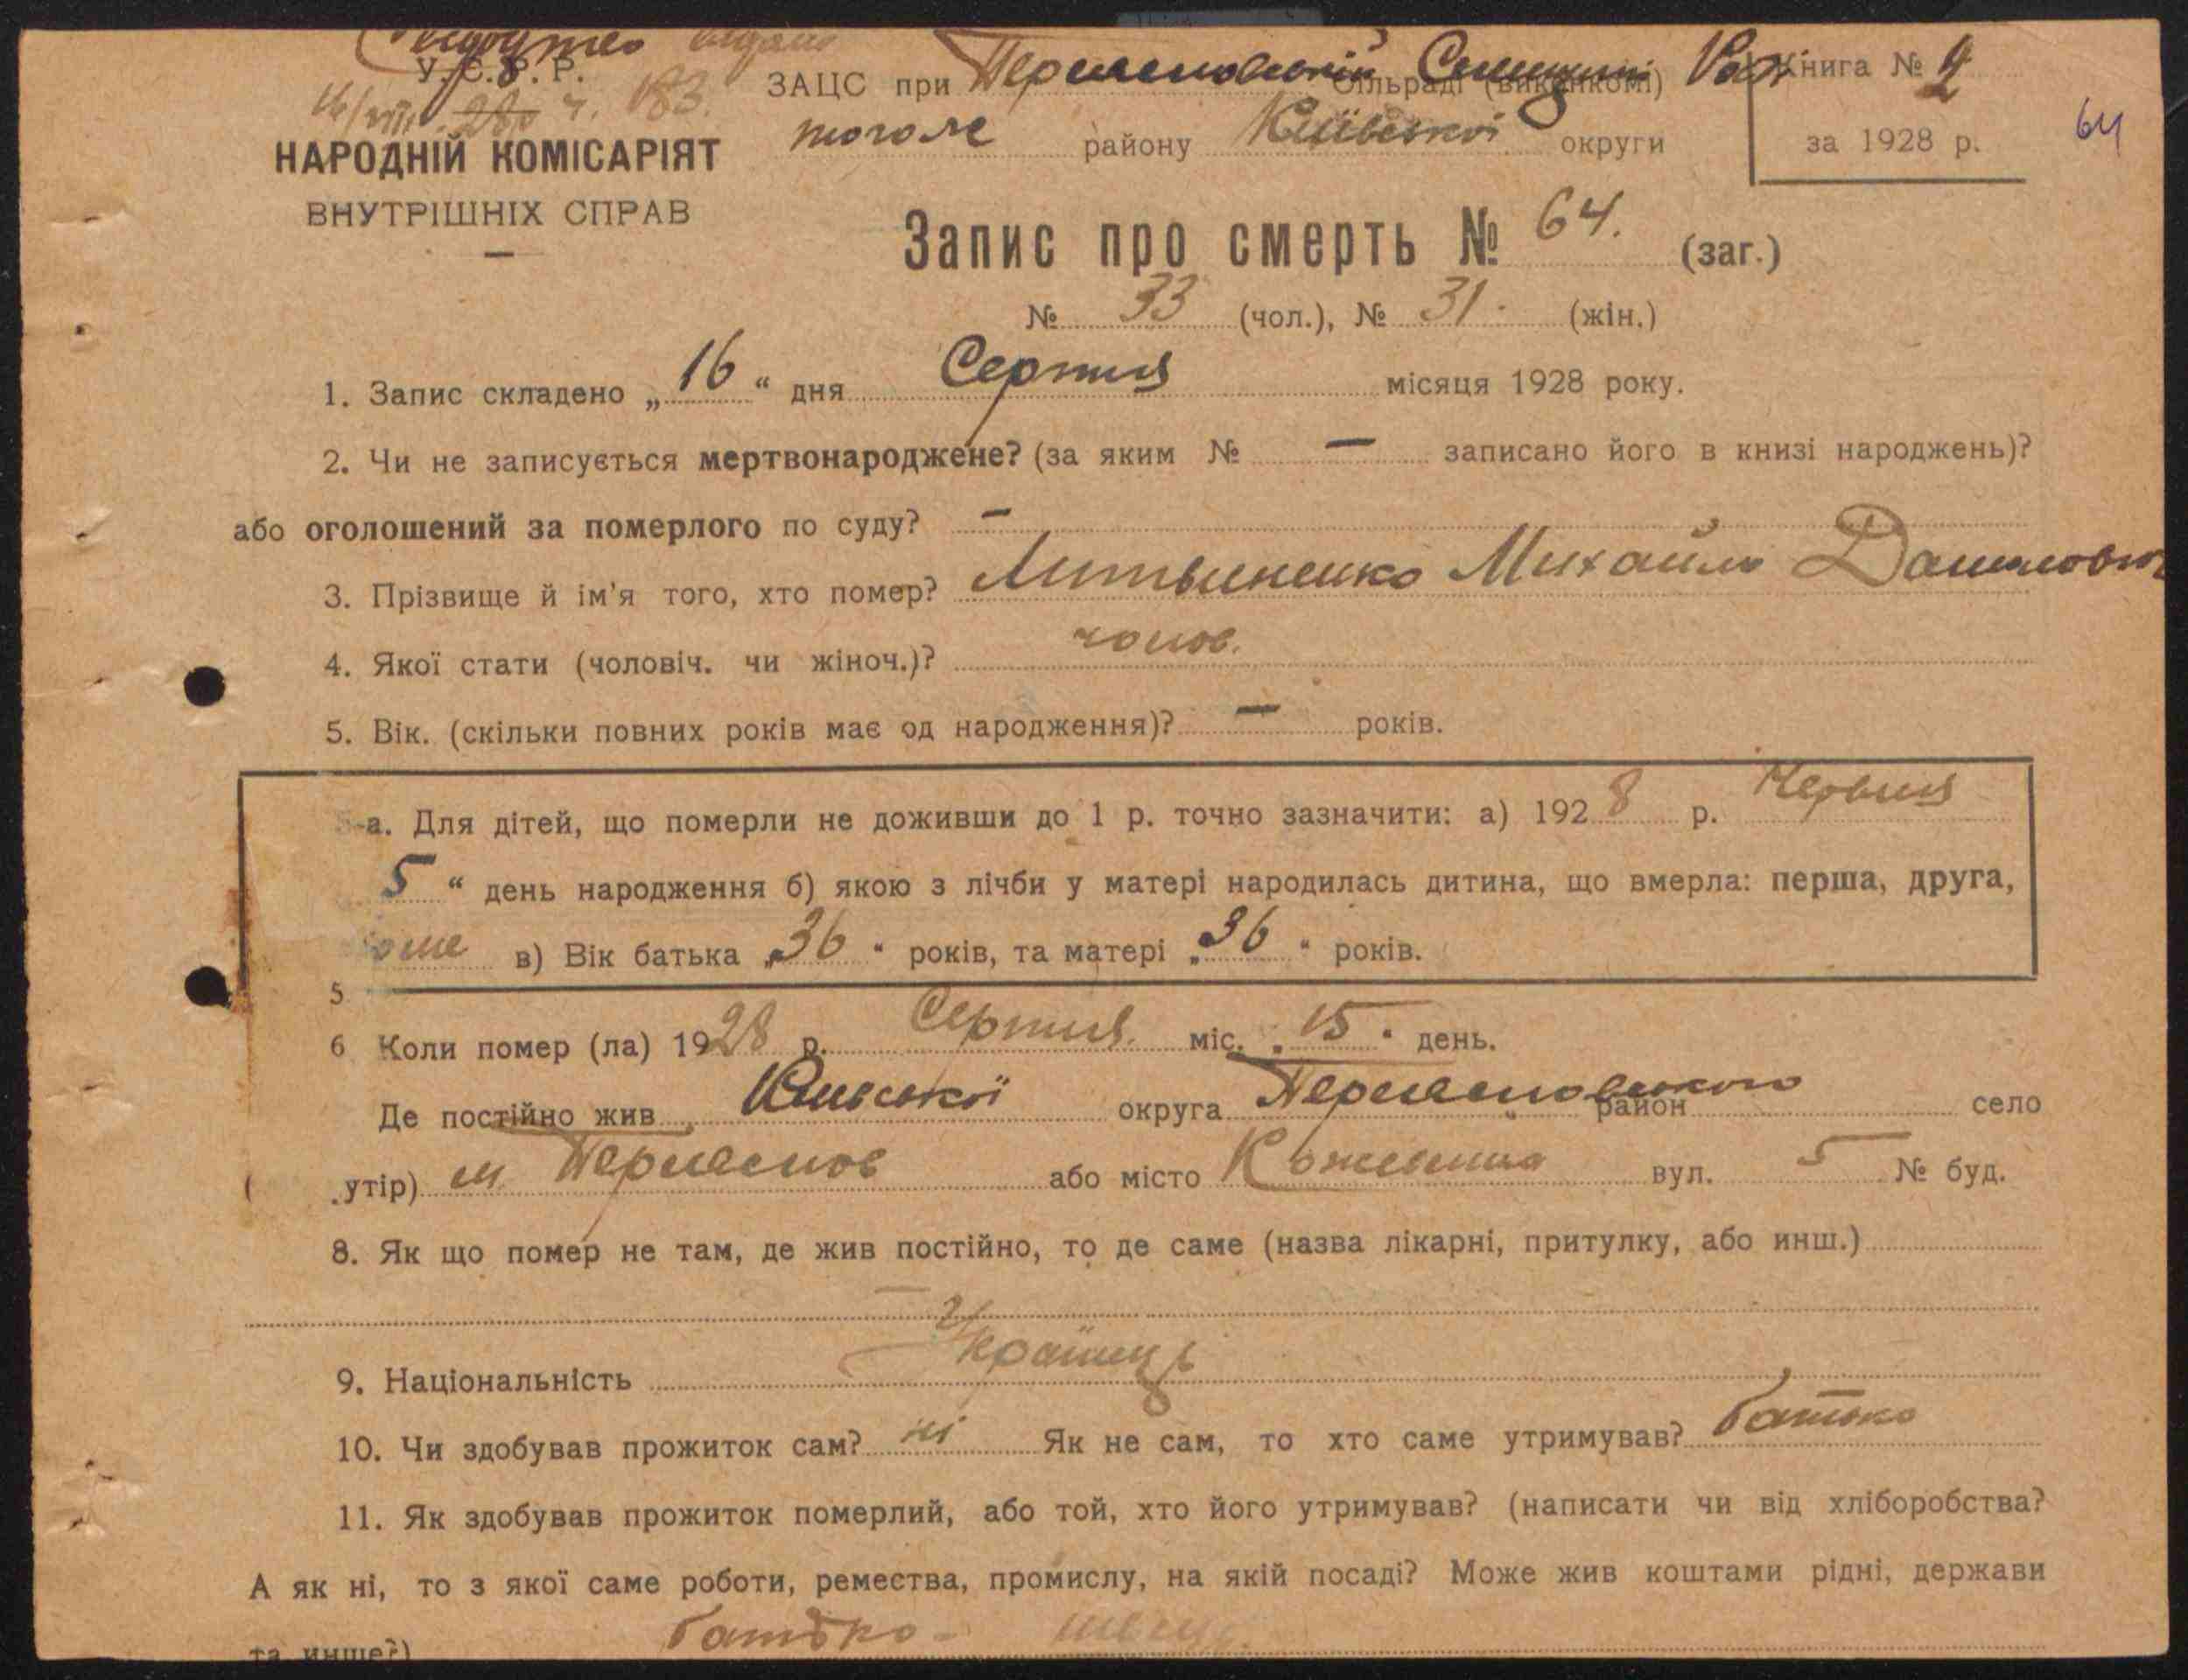 У. С. Р. Р.
16/VIII 28 ч. 183.
НАРОДНІЙ КОМІСАРІЯТ
ВНУТРІШНІХ СПРАВ
ЗАЦС при Сільраді (виканкомі)
того ж району Київської округи
Книга № 2
за 1928 р.
64
Запис про смерть № 64. (заг.)
№ 33 (чол.), № 31. (жін.)
1. Запис складено „16“ дня Серпня місяця 1928 року.
2. Чи не записується мертвонароджене? (за яким № — записано його в книзі народжень)?
або оголошений за померлого по суду? —
3. Прізвище й ім'я того, хто помер? Литвиненко Михайло Данилович
4. Якої стати (чоловіч. чи жіноч.)? чолов.
5. Вік. (скільки повних років має од народження)? — років.
5-а. Для дітей, що померли не доживши до 1 р. точно зазначити: а) 1928 р. Червня
5 “ день народження б) якою з лічби у матері народилась дитина, що вмерла: перша, друга,
в) Вік батька „36“ років, та матері „36“ років.
5
6 Коли помер (ла) 1928 р. Серпня міс. „15“ день.
Де постійно жив Київської округа район село
утір) м. або місто вул. 5 № буд.
8. Як що помер не там, де жив постійно, то де саме (назва лікарні, притулку, або инш.)
—
9. Національність Українець
10. Чи здобував прожиток сам? ні Як не сам, то хто саме утримував? батько
11. Як здобував прожиток померлий, або той, хто його утримував? (написати чи від хліборобства?
А як ні, то з якої саме роботи, ремества, промислу, на якій посаді? Може жив коштами рідні, держави
та инше?) батько - швець.